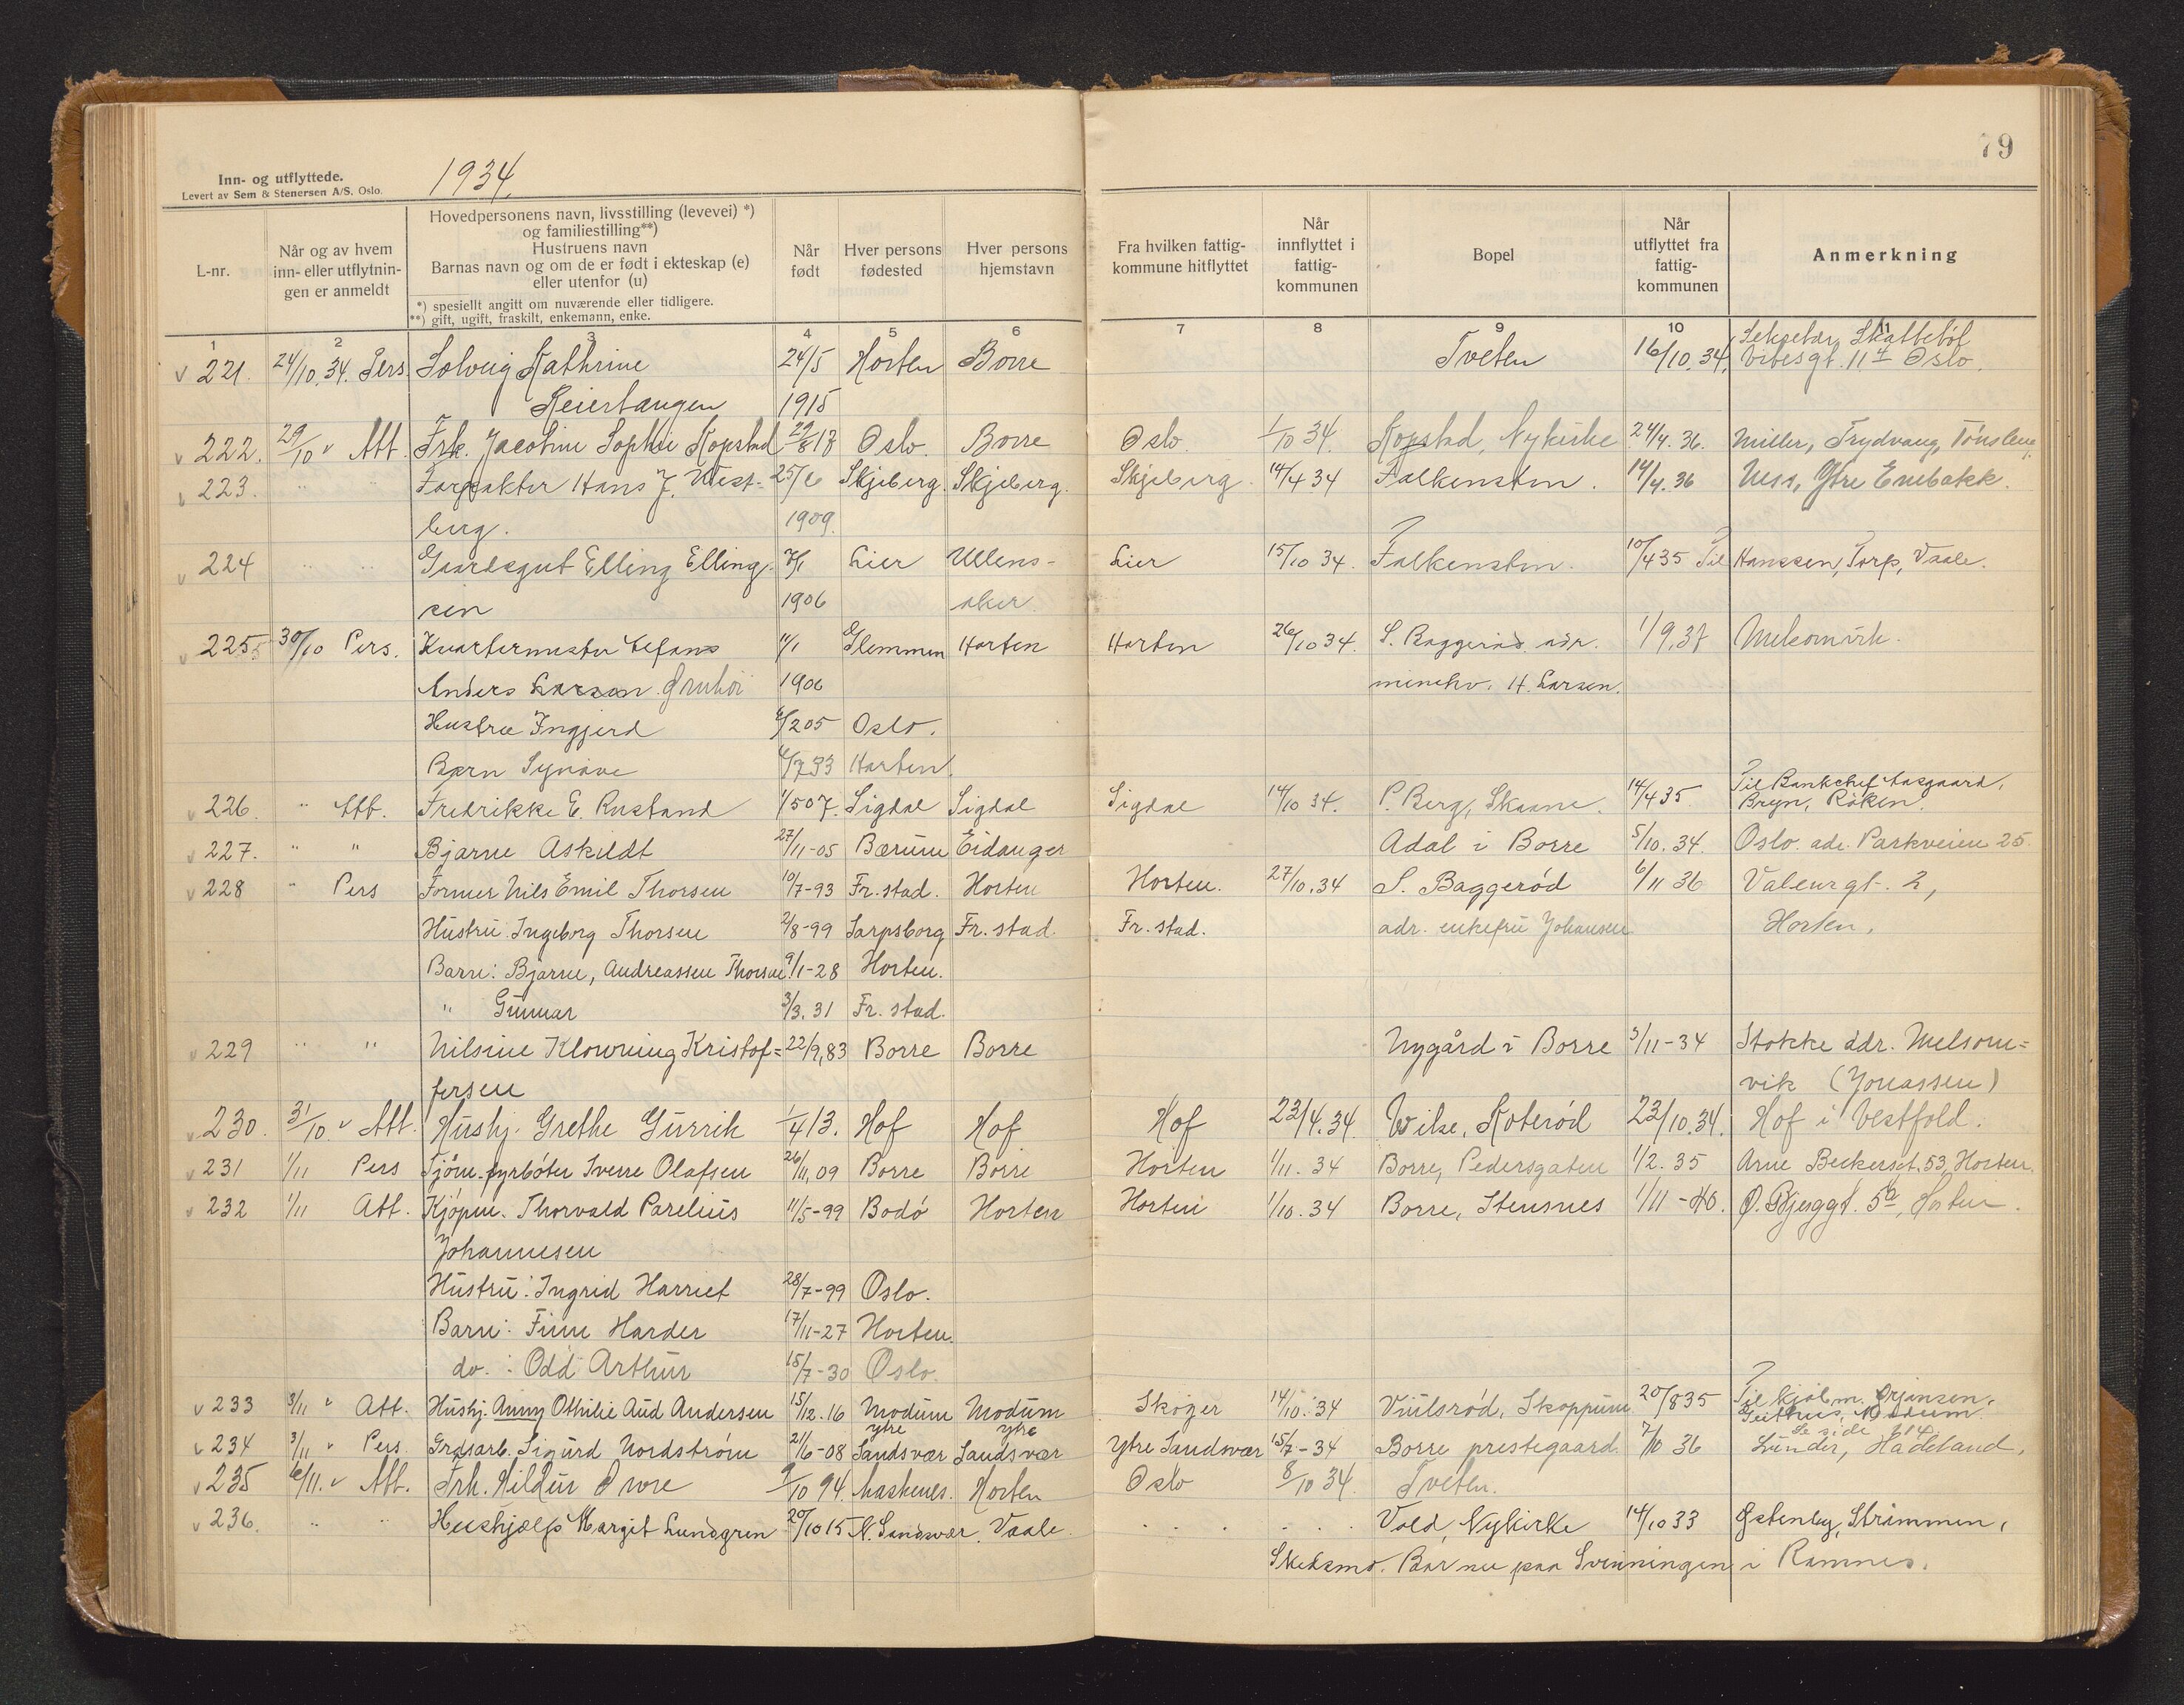 79
Inn- og utflyttede.
Levert av Sem & Stenersen A/S, Oslo.
1934.
L-nr.
Når og av hvem inn- eller utflytnin-gen er anmeldt
Hovedpersonens navn, livsstilling (levevei) *)
og familiestilling**)
Hustruens navn
Barnas navn og om de er født i ekteskap (e)
eller utenfor (u)
*) spesiellt angitt om nuværende eller tidligere.
**) gift, ugift, fraskilt, enkemann, enke.
Når født
Hver persons fødested
Hver persons hjemstavn
Fra hvilken fattig-kommune hitflyttet
Når innflyttet i fattig-kommunen
Bopel
Når utflyttet fra fattig-kommunen
Anmerkning
1 2 3 4 5 6 7 8 9 10 11
221. 24/10.34. Pers. Solveig Kathrine 24/5 Horten Borre Tveten 16/10.34. Sekretær Skattebøl Vibesgt. 11 Oslo.
Reiertangen 1915
222. 29/10 " Att. Frk. Jacobine Sophie Kopstad 29/8 Oslo. Borre Oslo 1/10 34. Kopstad, Nykirke 24/4.36. Møller, Trydvang, Tønsberg
223. " " Forpakter Hans J. West- 25/6 Skjeberg. Skjeberg. Skjeberg. 14/4 34 Falkensten. 14/4.36 Ness, Ytre Enebakk.
berg. 1909.
224 " " Gaardsgut Elling Elling- 7/1 Lier Ullens- Lier 15/10 34. Falkensten. 10/4 35 Til Hanssen, Torp, Vaale.
sen 1906 aker
225 30/10 Pers. Kvartermester Anders Larsen Gruhøi 1906 Glemmen Horten Horten 26/10 34. S. Baggerød adr. 1/9.37
minekv. H. Larsen.
Hustru Ingjerd 6/2 05 Oslo.
Barn Synøve Horten.
226. " Att. Fredrikke E. Rustand 1/5 07. Sigdal Sigdal Sigdal 14/10 34. P. Berg, Skaane. 14/4 35 Til Bankchef Aasgaard, Bryn, Røken.
227. " " Bjarne Askildt 27/11-05 Bærum Eidanger Adal i Borre 5/10.34. Oslo. adr. Parkveien 25.
228 " Pers Former Nils Emil Thorsen 10/7-93 Fr.stad. Horten Horten. 27/10.34 S. Baggerød 6/11 36 Valeurgt. 2,
Hustru: Ingeborg Thorsen 2/8-99 Sarpsborg Fr. stad. Fr. stad. adr. enkefru Johansen Horten.
Barn: Bjarne, Andreassen Thorsen 9/1-28 Horten.
" Gunnar 3/3.31 Fr. stad.
229 " " Nilsine Klowning Kristof= 22/9,83 Borre Borre Nygård i Borre 5/11-34 Stokke adr. Melsom=
fersen vik (Jonassen)
230. 31/10 " Att. Hushj. Grethe Gurrik 1/4 13. Hof Hof Hof 23/4.34. Wike, Roterød 23/10.34. Hof i Vestfold.
231 1/11 Pers Tjöm. fyrbøter Sverre Olafsen 26/11,09 Borre Borre Horten 1/11.34 Borre, Pedersgaten 1/2.35 Arne Beckersgt. 53, Horten.
232 1/11 Att. Kjöpm. Thorvald Parelius 11/5-99 Bodö Horten Horten 1/10.34 Borre, Stensnes 1/11-40. Ø. 5a, Horten.
Johannesen
Hustru: Ingrid Harriet 28/7-99 Oslo.
Barn: Finn Harder 17/11-27 Horten.
do. : Odd Arthur 15/7-30 Oslo.
233 3/11 " Att. Hushj. Anny Othilie Aud Andersen 15/12.16 Modum Modum Skoger 14/10.34 Viulsrød, Skoppum 20/8 35 Til kjøbm. Ørjansen, Geithus, Modum
234 3/11 " Pers. Grdsarb. Sigurd Nordstrøm 21/6-08 ytre Sandsvær ytre Sandsvær Ytre Sandsvær 15/7-34 Borre prestegaard 7/10 36 Se side 614 Lunder, Hadeland.
235 6/11. " Att. Frk. Hildur Onore 9/10 94. Horten Oslo 8/10 34. Tveten.
236. " " Hushjælp Margit Lundgren 20/10 15 N. Sandsvær. Vaale. . . . . . . Vold, Nykirke 14/10 33 Østenby, Strømmen,
Skedsmo. Bor nu paa Svinningen i Ramnes.